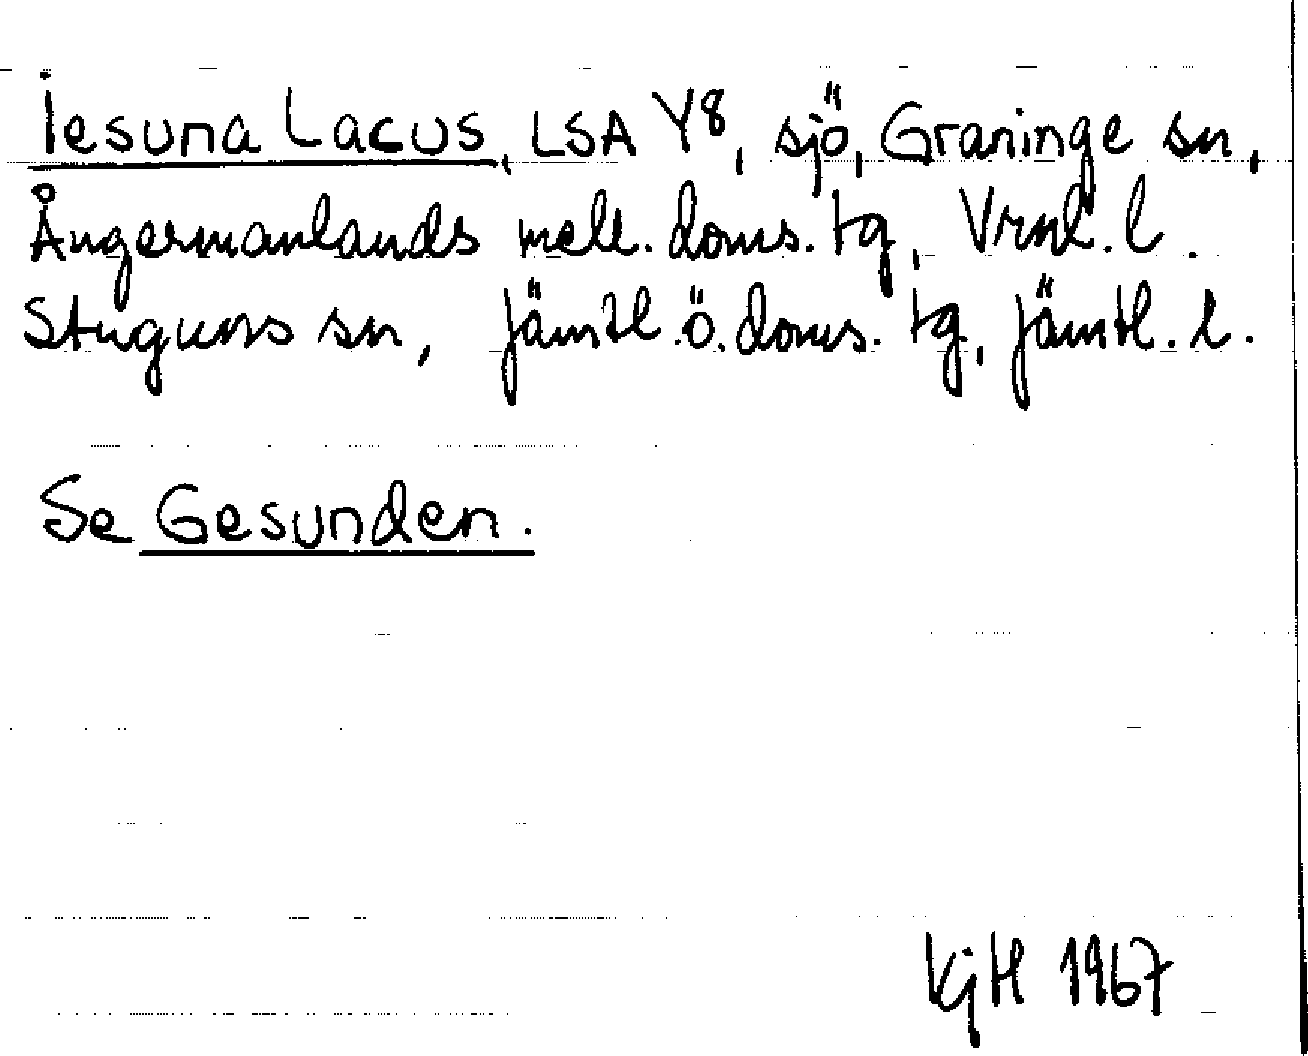 Iesuna Lacus, LSA Y8, sjö, Graninge sn,
Ångermanlands mell. doms. tg, Vrnl. l.
Stuguns sn, Jämtl. ö. doms. tg, Jämtl. l.
Se Gesunden.
KjH 1967